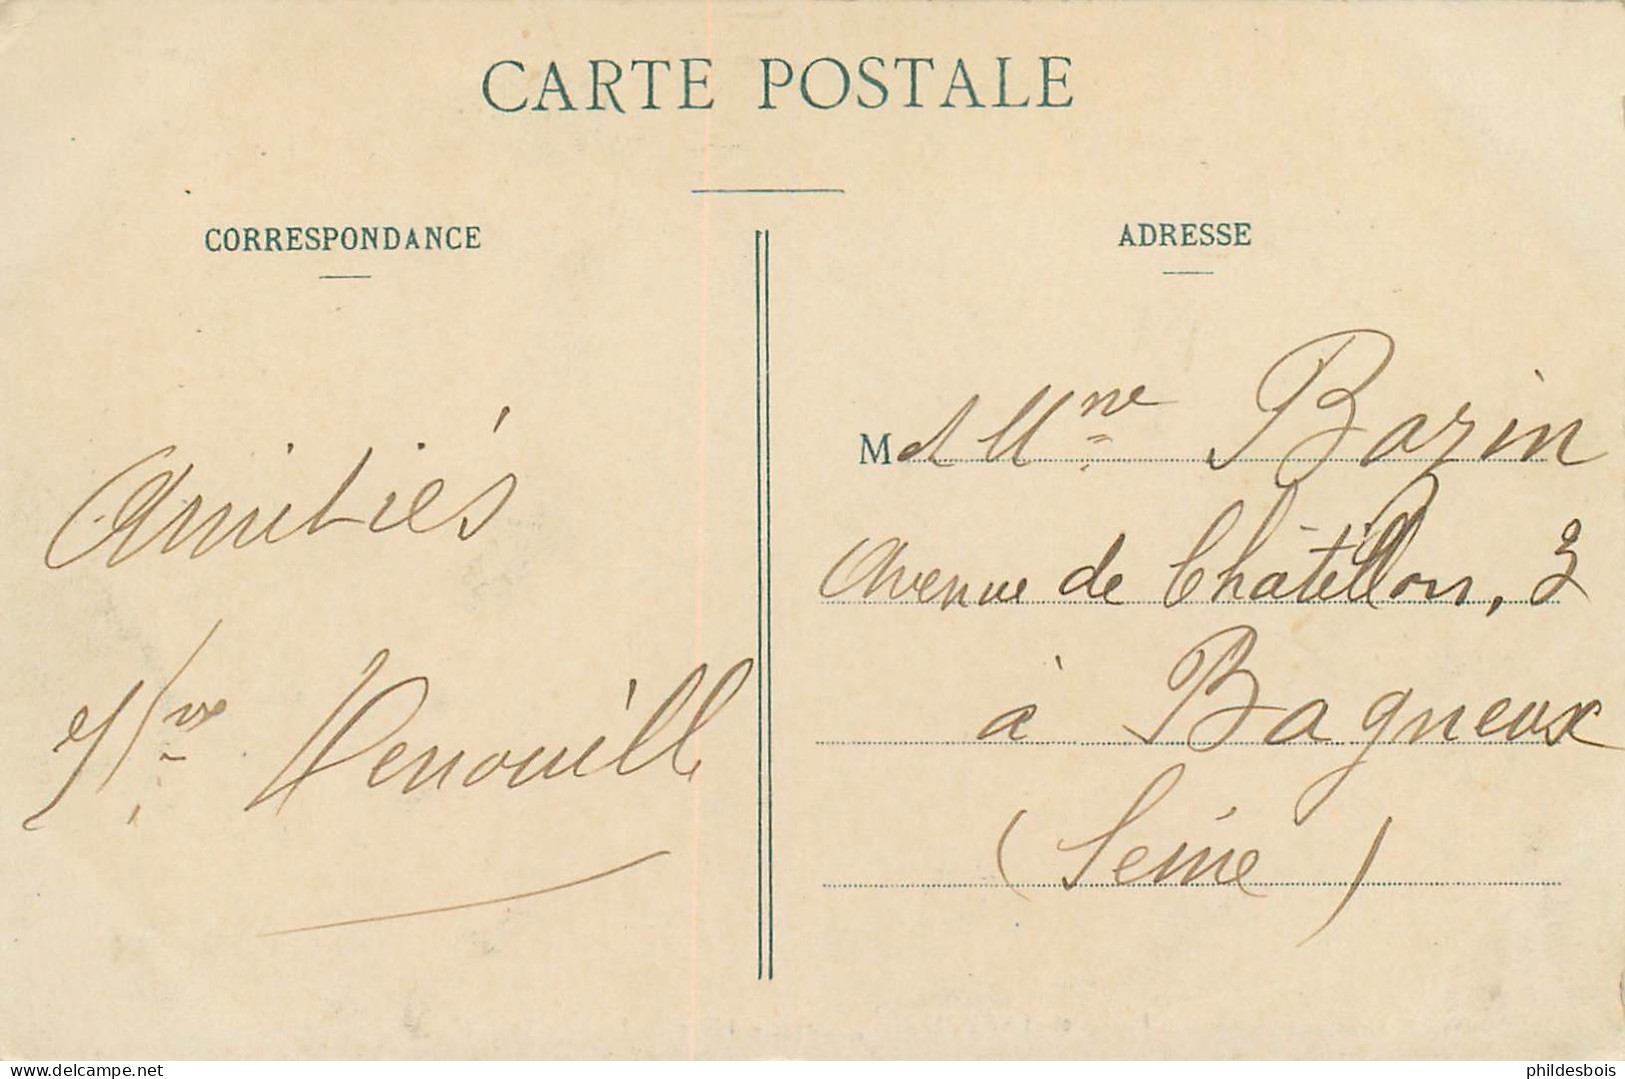 CARTE POSTALE
CORRESPONDANCE
Amitiés
Vve Henouill
ADRESSE
M et Mme Bazin
Avenue de Châtillon, 3
à Bagneux
(Seine)
https://www.delcampe.net
phildesbois